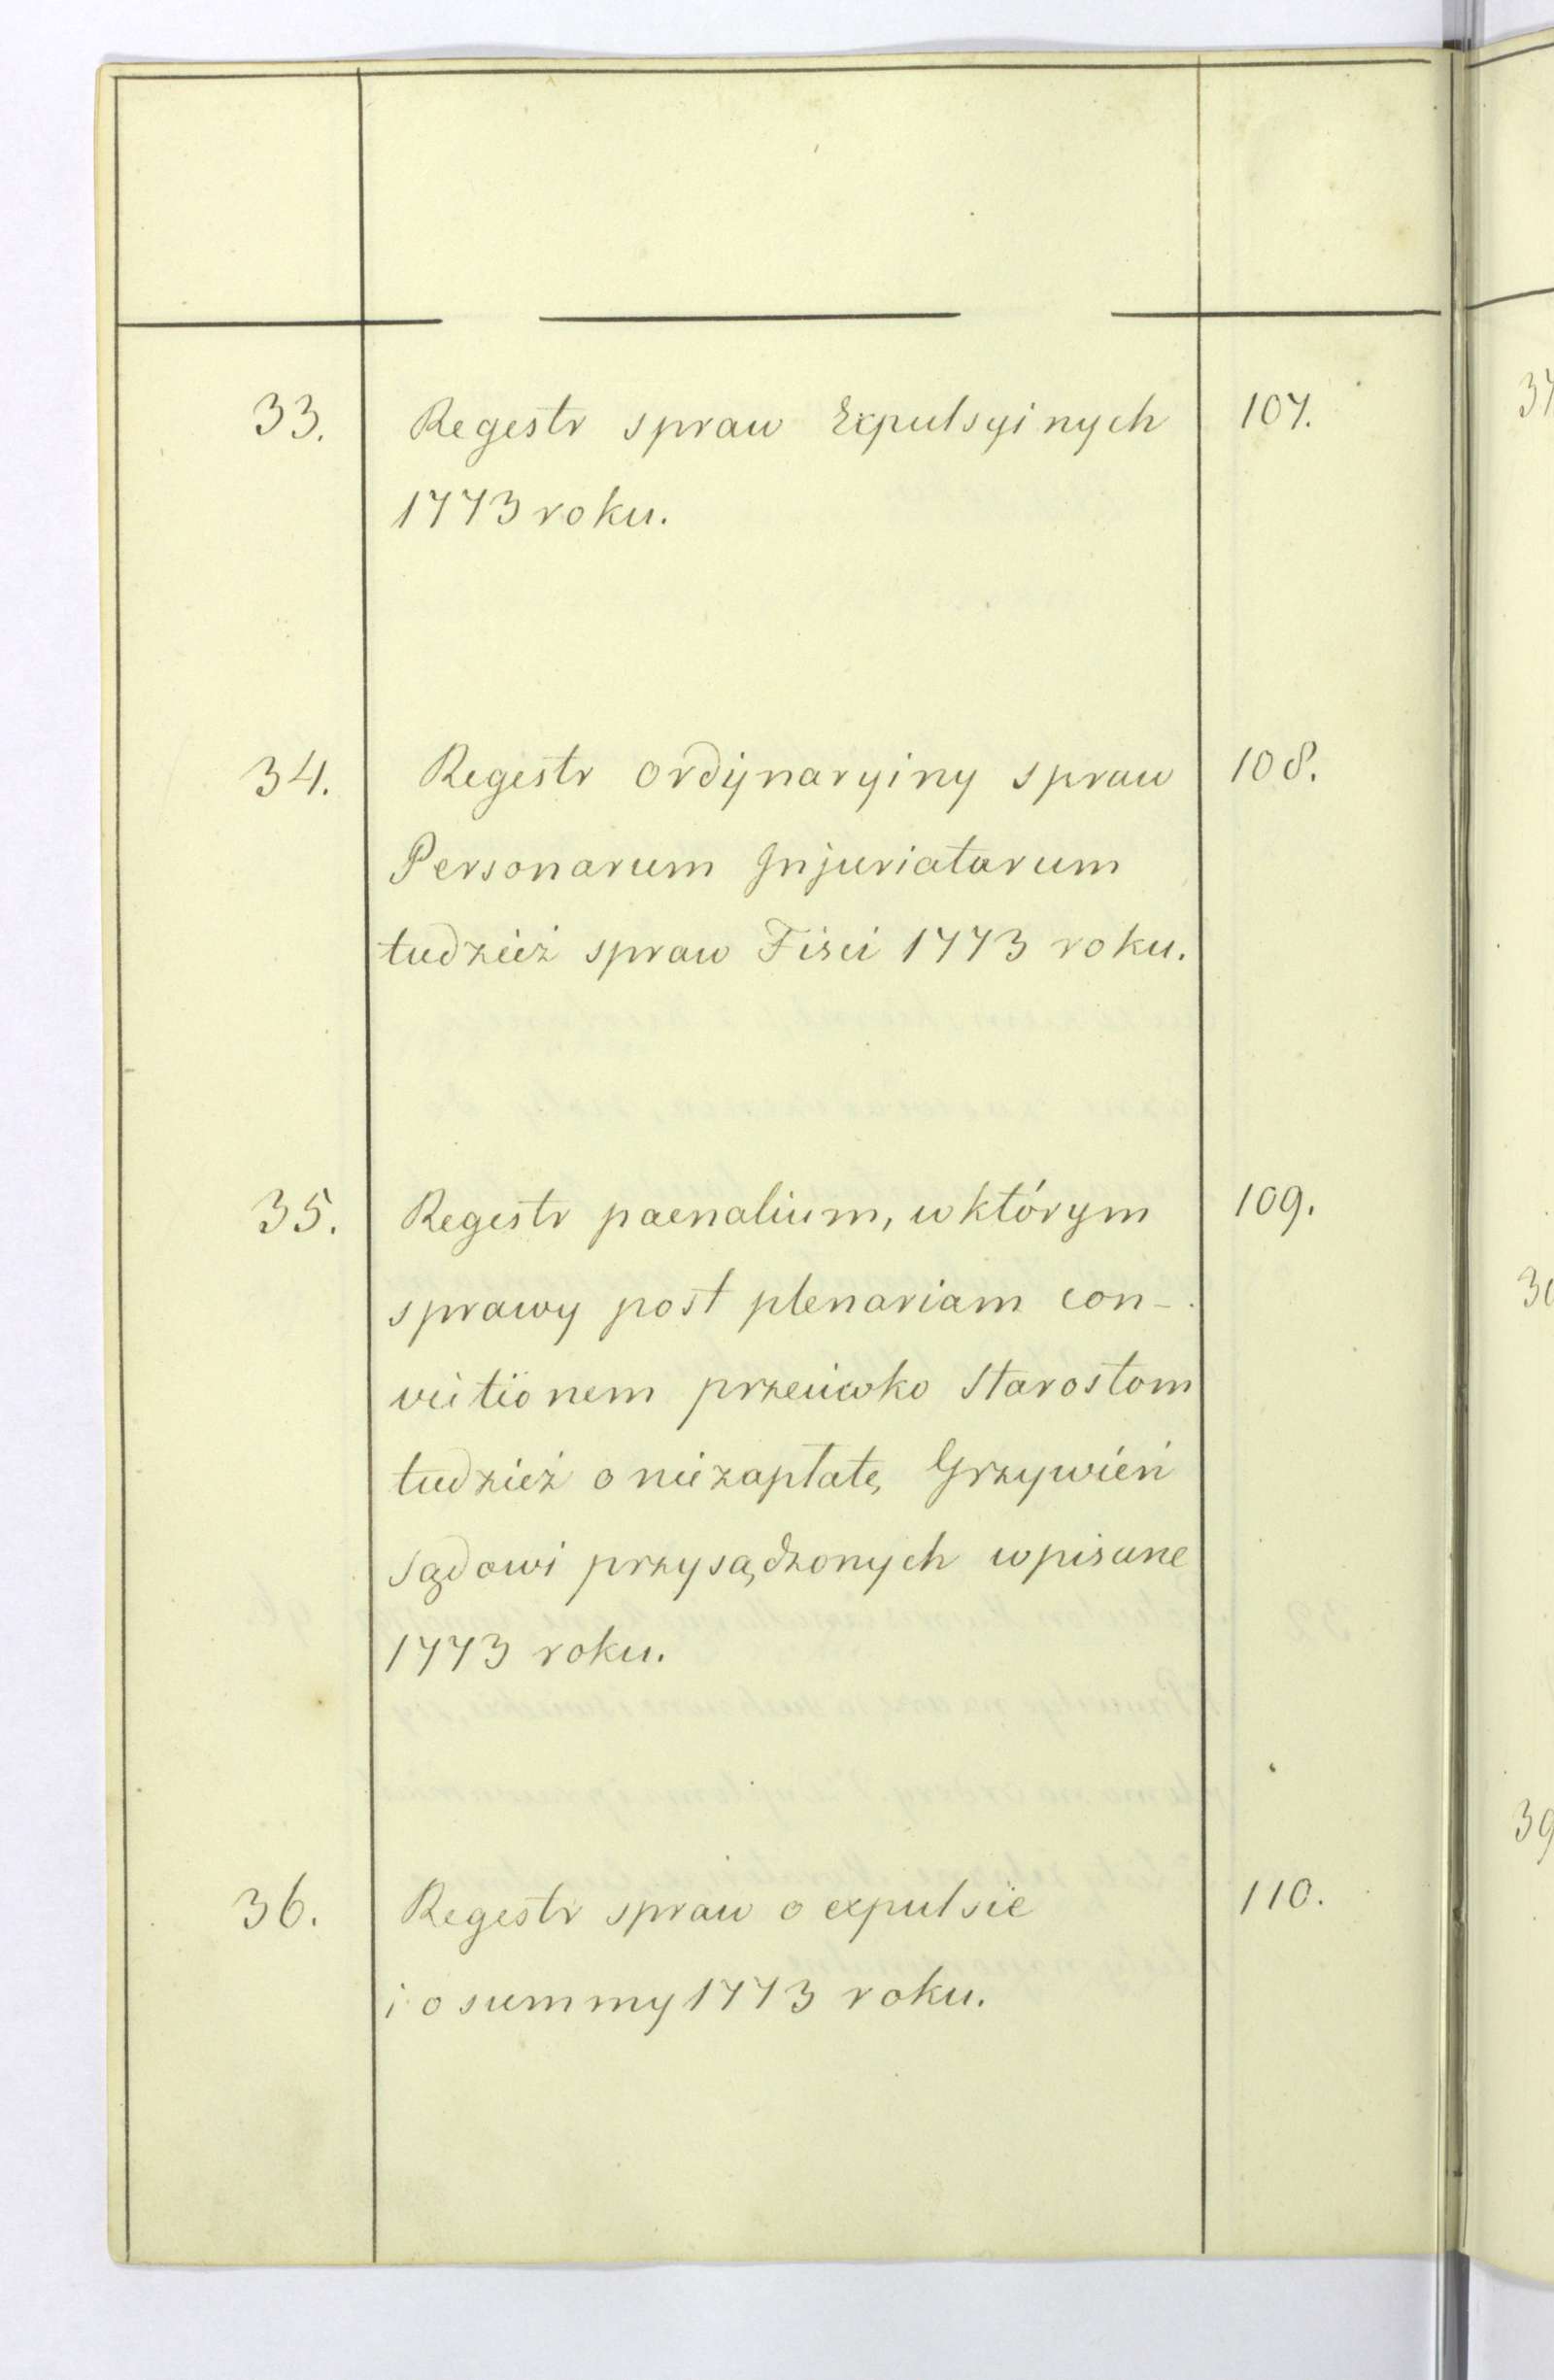 33. Regestr spraw Expulsyinych 107.
1773 roku.
34. Regestr ordynaryiny spraw 108.
Personarum Injuriatarum
tudzież spraw Fisci 1773 roku.
35. Regestr paenalium, w którym 109.
sprawy post plenariam con-
victionem przeciwko Starostom
tudzież o niezapłatę Grzywień
sądowi przysądzonych wpisane
1773 roku.
36. Regestr spraw o expulsie 110.
i o summy 1773 roku.